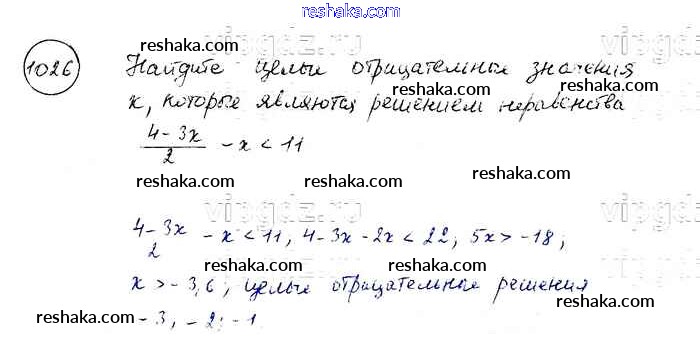 reshaka.com
reshaka.com reshaka.com reshaka.com
1026 Найдите целые отрицательные значения
x, которые являются решением неравенства
reshaka.com reshaka.com reshaka.com
(4-3x)/2 - x < 11
reshaka.com reshaka.com reshaka.com
vipgdz.ru vipgdz.ru
(4-3x)/2 - x < 11, 4-3x-2x < 22; 5x > -18;
reshaka.com reshaka.com reshaka.com
x > -3,6; целые отрицательные решения
reshaka.com reshaka.com reshaka.com
-3, -2; -1